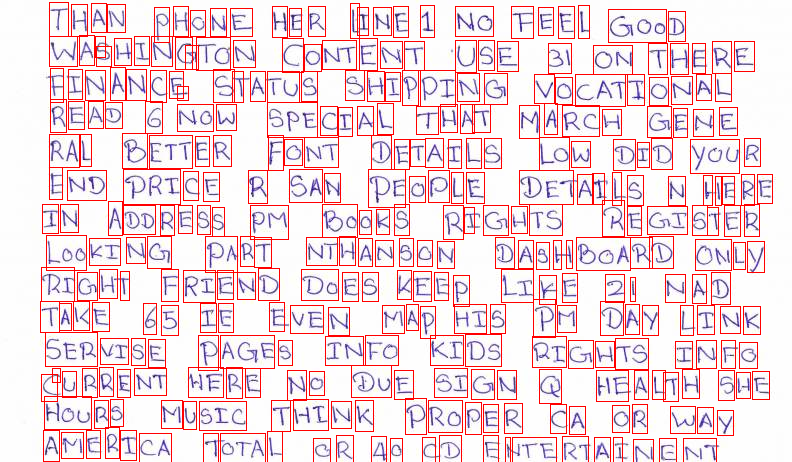 THAN PHONE HER LINE 1 NO FEEL GOOD
WASHINGTON CONTENT USE 31 ON THERE
FINANCE STATUS SHIPPING VOCATIONAL
READ 6 NOW SPECIAL THAT MARCH GENE
RAL BETTER FONT DETAILS LOW DID YOUR
END PRICE R SAN PEOPLE DETAILS N HERE
IN ADDRESS PM BOOKS RIGHTS REGISTER
LOOKING PART NTHANSON DASHBOARD ONLY
RIGHT FRIEND DOES KEEP LIKE 21 NAD
TAKE 65 IE EVEN MAP HIS PM DAY LINK
SERVISE PAGES INFO KIDS RIGHTS INFO
CURRENT WERE NO DUE SIGN Q HEALTH SHE
HOURS MUSIC THINK PROPER CA OR WAY
AMERICA TOTAL OR 40 CD ENTERTAINENT